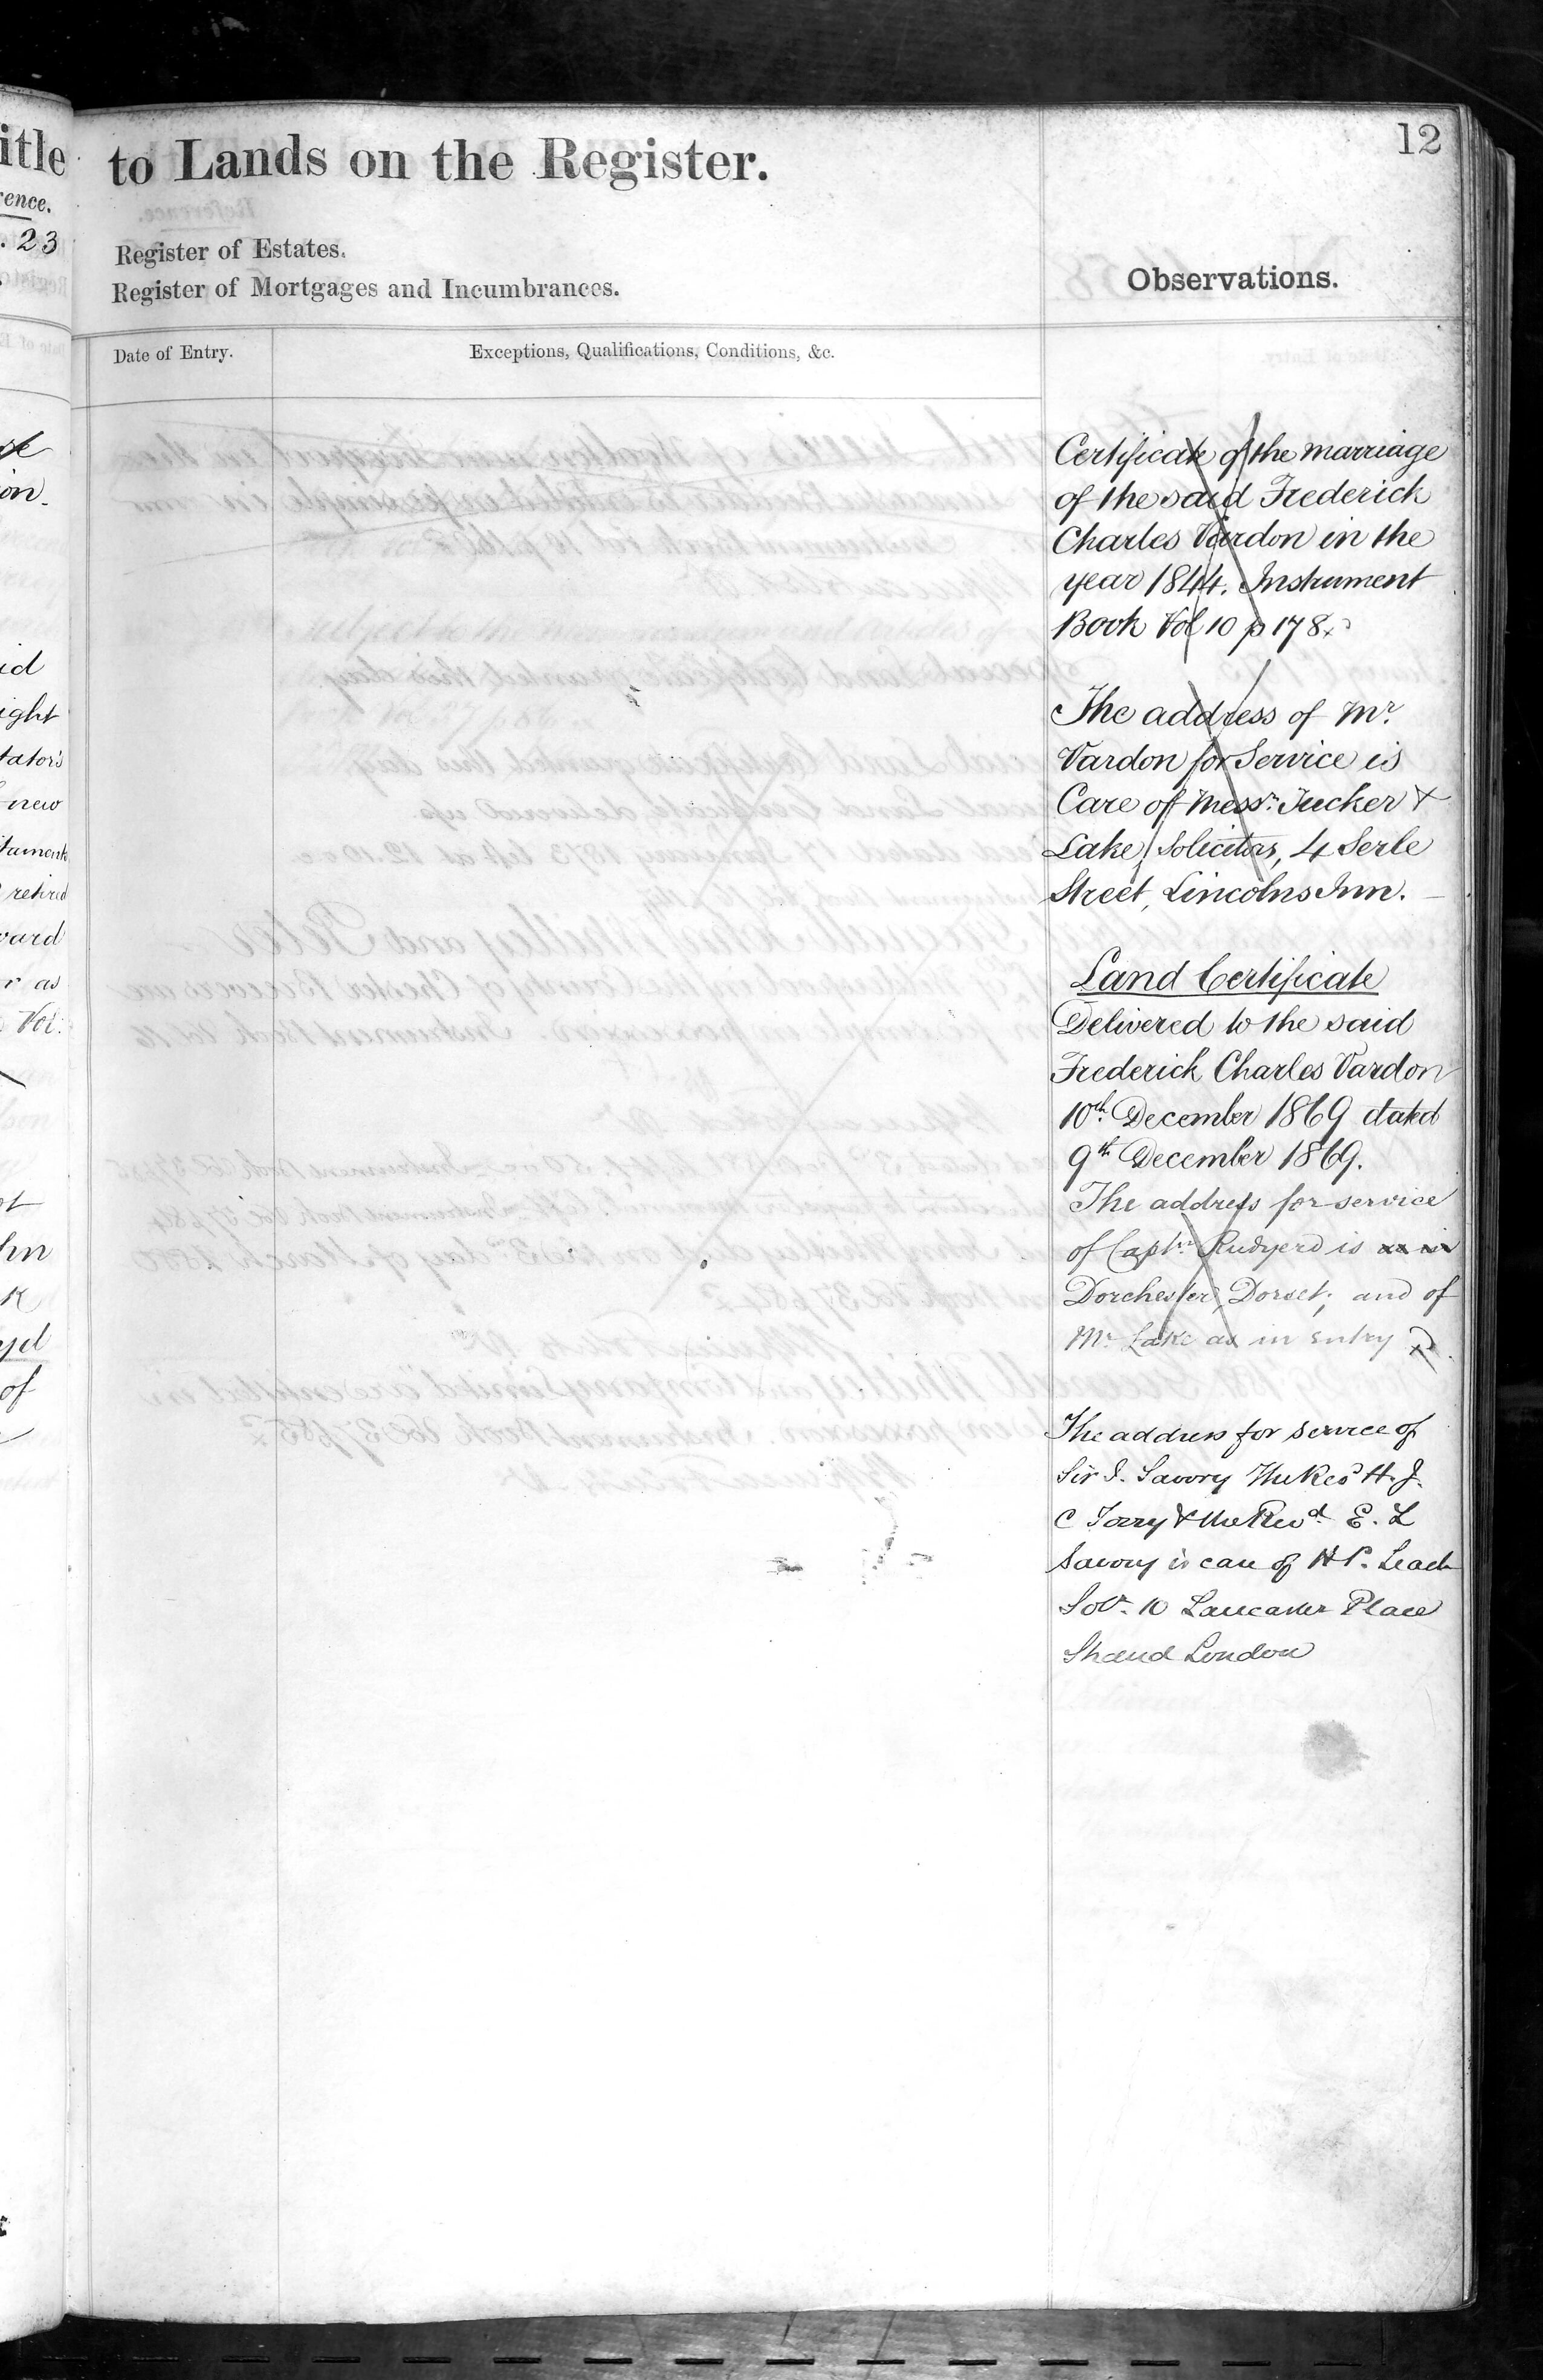 itle
rence.
. 23
on.
id
ight
tator's
new
retired
vard
r as
Vol:
hn
yd
of
12
to Lands on the Register.
Register of Estates.
Register of Mortgages and Incumbrances.
Observations.
Date of Entry.
Exceptions, Qualifications, Conditions, &c.
Certificate of the marriage
of the said Frederick
Charles Vardon in the
year 1844. Instrument
Book Vol 10 p 178
The address of Mr.
Vardon for Service is
Care of Messrs. Tucker &
Lake, Solicitors, 4 Serle
Street, Lincolns Inn.
Land Certificate
Delivered to the said
Frederick Charles Vardon
10th December 1869 dated
9th December 1869.
The address for service
of Captn. Rudyerd is
Dorchester, Dorset; and of
Mr. Lake as in entry
The address for service of
Sir J. Savory The Revd H. J.
C Torry & the Revd. E. L
Savory is care of H P. Leach
Solr. 10 Lancaster Place
Strand London